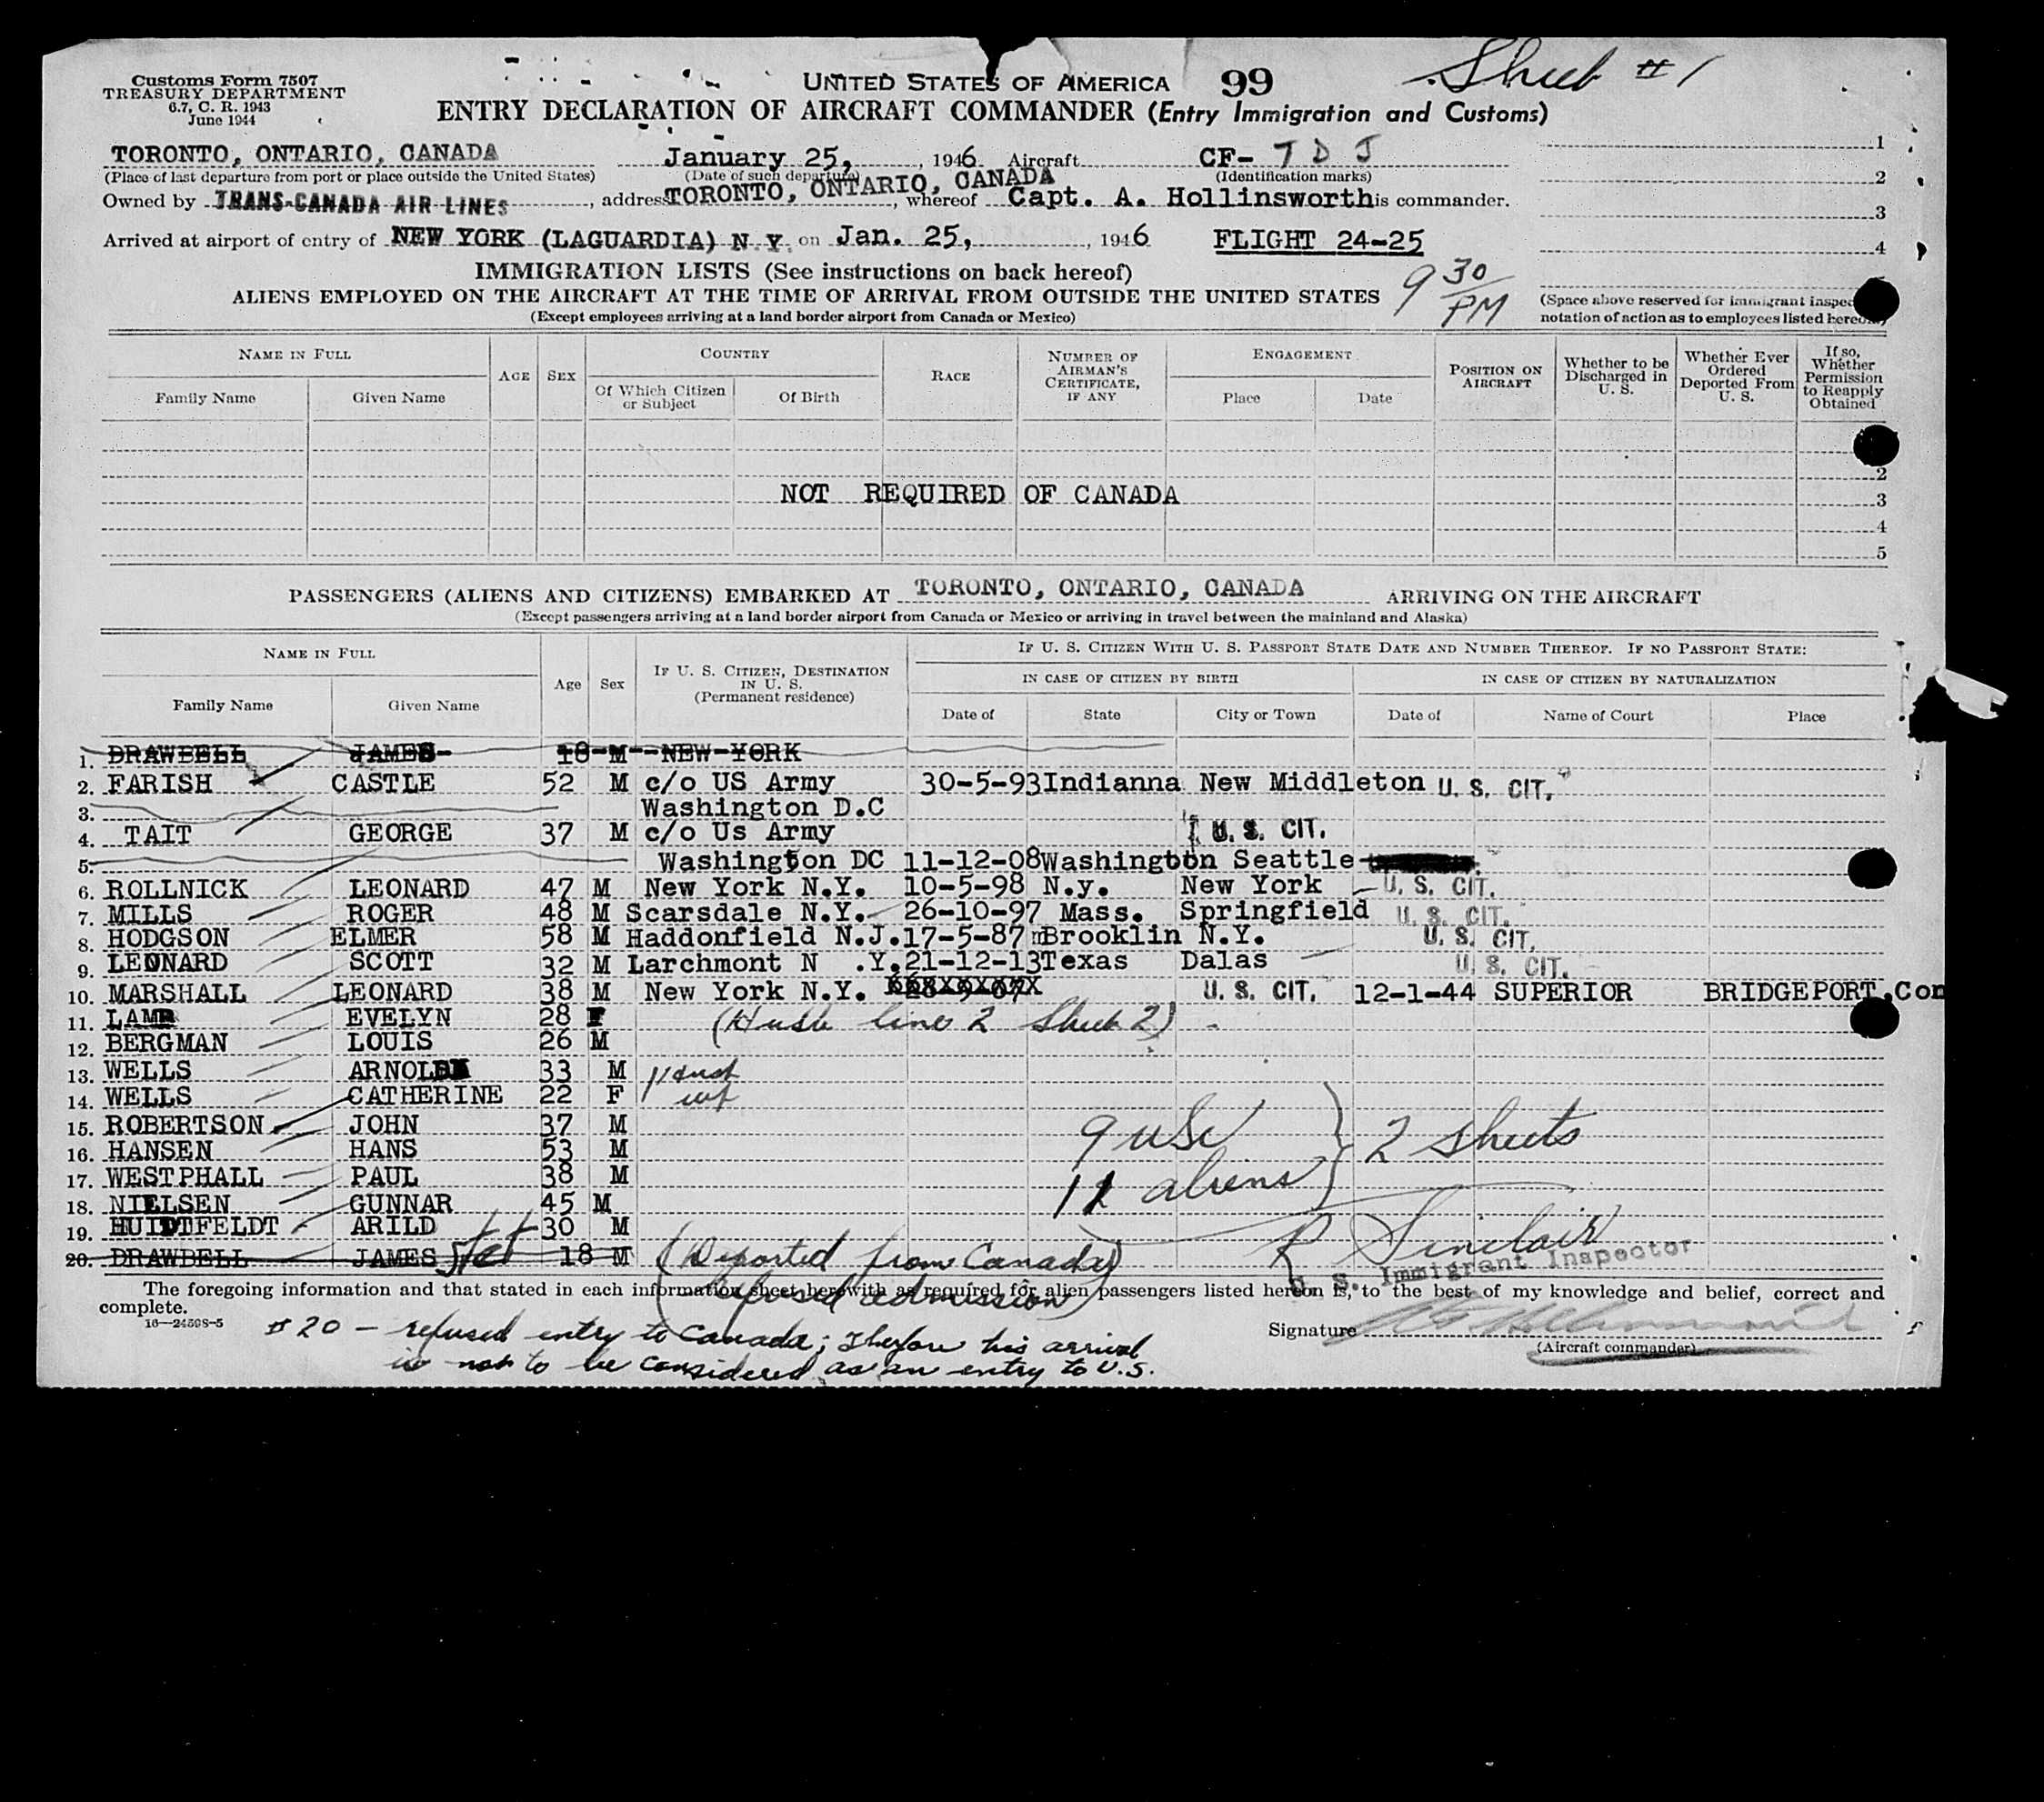 Customs Form 7507
TREASURY DEPARTMENT
6.7, C. R. 1943
June 1944
UNITED STATES OF AMERICA 99 Sheet #1
ENTRY DECLARATION OF AIRCRAFT COMMANDER (Entry Immigration and Customs)
TORONTO, ONTARIO, CANADA January 25, , 1946 Aircraft CF- T D J 1
(Place of last departure from port or place outside the United States) (Date of such departure) (Identification marks) 2
Owned by TRANS-CANADA AIR LINES , address TORONTO, ONTARIO, CANADA , whereof Capt. A. Hollinsworth is commander. 3
Arrived at airport of entry of NEW YORK (LAGUARDIA) N.Y. on Jan. 25, , 1946 FLIGHT 24-25 4
IMMIGRATION LISTS (See instructions on back hereof)
ALIENS EMPLOYED ON THE AIRCRAFT AT THE TIME OF ARRIVAL FROM OUTSIDE THE UNITED STATES 9 30 PM
(Except employees arriving at a land border airport from Canada or Mexico)
(Space above reserved for immigrant inspec
notation of action as to employees listed hereon.)
NAME IN FULL AGE SEX COUNTRY RACE NUMBER OF AIRMAN'S CERTIFICATE, IF ANY ENGAGEMENT POSITION ON AIRCRAFT Whether to be Discharged in U. S. Whether Ever Ordered Deported From U. S. If so, Whether Permission to Reapply Obtained
Family Name Given Name Of Which Citizen or Subject Of Birth Place Date
2
NOT REQUIRED OF CANADA 3
4
5
PASSENGERS (ALIENS AND CITIZENS) EMBARKED AT TORONTO, ONTARIO, CANADA ARRIVING ON THE AIRCRAFT
(Except passengers arriving at a land border airport from Canada or Mexico or arriving in travel between the mainland and Alaska)
NAME IN FULL Age Sex IF U. S. CITIZEN, DESTINATION IN U. S. (Permanent residence) IF U. S. CITIZEN WITH U. S. PASSPORT STATE DATE AND NUMBER THEREOF. IF NO PASSPORT STATE:
IN CASE OF CITIZEN BY BIRTH IN CASE OF CITIZEN BY NATURALIZATION
Family Name Given Name Date of State City or Town Date of Name of Court Place
1. DRAWBELL JAMES- 18-M--NEW-YORK
2. FARISH CASTLE 52 M c/o US Army 30-5-93 Indianna New Middleton U. S. CIT.
3. Washington D.C
4. TAIT GEORGE 37 M c/o Us Army U. S. CIT.
5. Washington DC 11-12-08 Washington Seattle
6. ROLLNICK LEONARD 47 M New York N.Y. 10-5-98 N.y. New York U. S. CIT.
7. MILLS ROGER 48 M Scarsdale N.Y. 26-10-97 Mass. Springfield U. S. CIT.
8. HODGSON ELMER 58 M Haddonfield N.J. 17-5-87 Brooklin N.Y. U. S. CIT.
9. LEONARD SCOTT 32 M Larchmont N .Y. 21-12-13 Texas Dalas U. S. CIT.
10. MARSHALL LEONARD 38 M New York N.Y. U. S. CIT. 12-1-44 SUPERIOR BRIDGEPORT,Con
11. LAMB EVELYN 28 F (Husb line 2 Sheet 2)
12. BERGMAN LOUIS 26 M
13. WELLS ARNOLD 33 M
14. WELLS CATHERINE 22 F
15. ROBERTSON JOHN 37 M 9 USC
16. HANSEN HANS 53 M 2 sheets
17. WESTPHALL PAUL 38 M 11 aliens
18. NIELSEN GUNNAR 45 M
19. HUIDTFELDT ARILD 30 M R Sinclair
20. DRAWBELL JAMES stet 18 M (Deported from Canada) U. S. Immigrant Inspector
refused admission
The foregoing information and that stated in each information sheet herewith as required for alien passengers listed hereon is, to the best of my knowledge and belief, correct and
complete.
16—24598-5
#20 - refused entry to Canada; Therefore his arrival
is not to be considered as an entry to U.S.
Signature
(Aircraft commander)